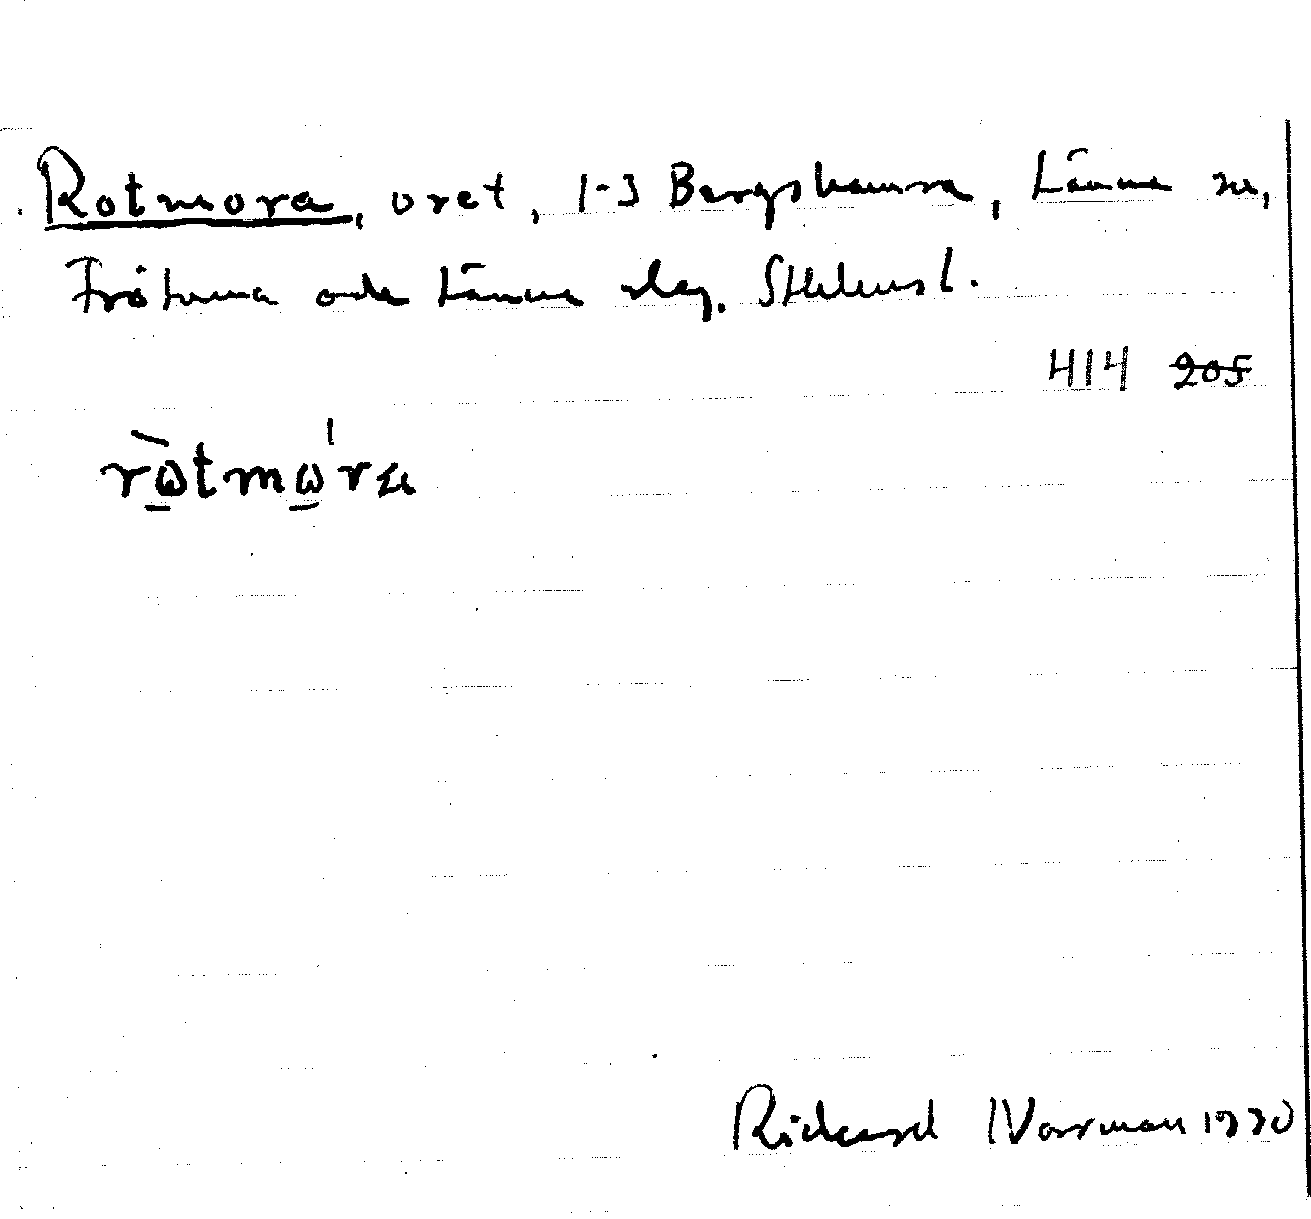 Rotmora, oret, 1-3 Bergshamra, Länna sn,
Frötuna och Länna slag. Sthlms l.
414 205
rωtmω'ra
Rickard Norrman 1930